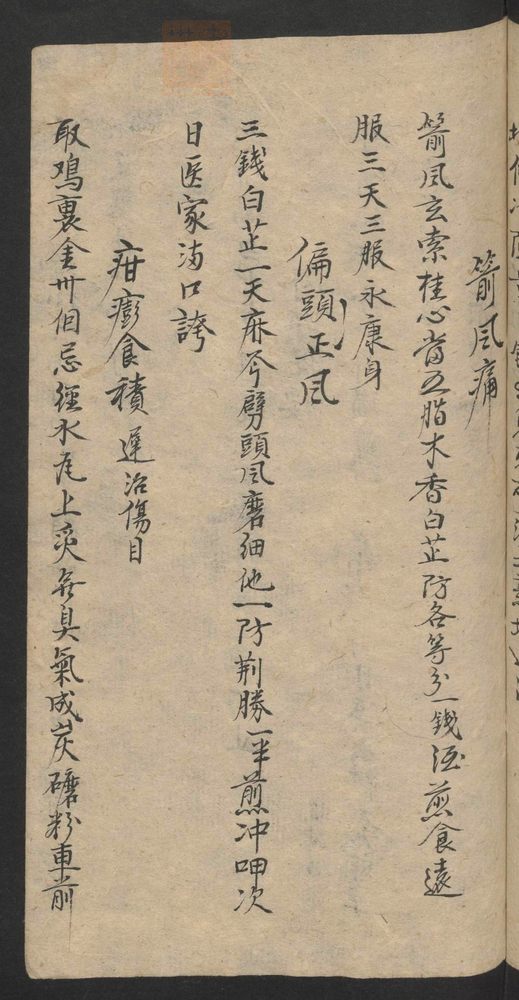 箭風痛
箭風玄索桂心當五脂木香白芷防各等分一錢酒煎食遠
服三天三服永康身
偏頭正風
三錢白芷一天麻芩劈頭風磨細他一防荆勝一半煎冲呷次
日医家満口誇
疳膨食積遲治傷目
取鸡裏金卅個忌經水瓦上炙無臭氣成炭礳粉車前